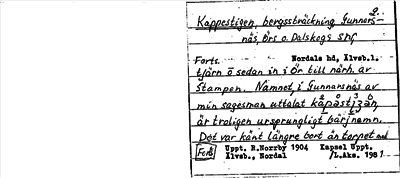 Kappestigen, bergssträckning, Gunnars-
näs, Örs o. Dalskogs snr
Forts. Nordals hd, Älvsb.l.
tjärn ö sedan in i Ör till närh. av
Stampen. Namnet, i Gunnarsnäs av
min sagesman uttalat
är troligen ursprungligt bärjnamn.
Det var känt längre bort än torpet med
Forts Uppt. R.Norrby 1904 Kapsel Uppt.
Älvsb., Nordal /L.Aks. 1981